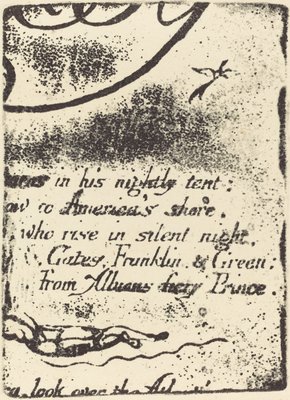 urns in his nightly tent:
ow to America's shore.
who rise in silent night,
Gates, Franklin & Green;
from Albions fiery Prince.
look over the